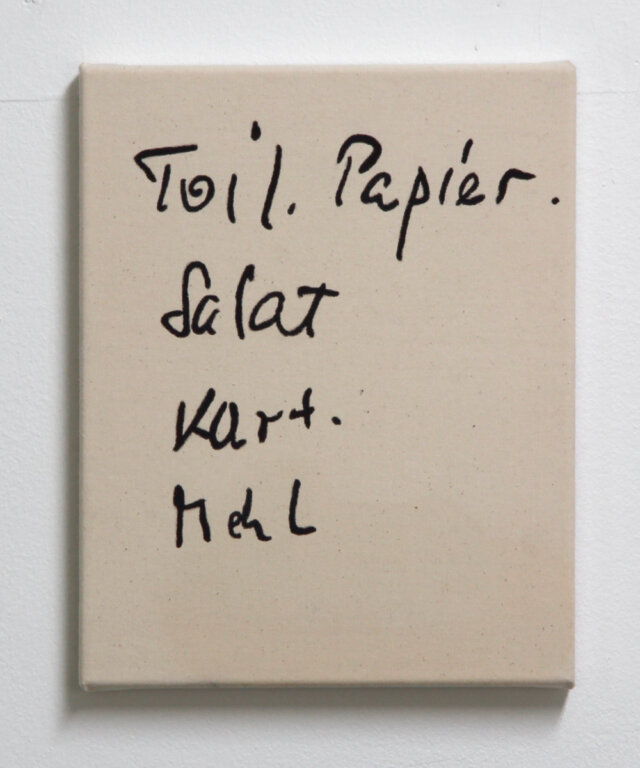 Toil. Papier.
Salat
Kart.
Mehl